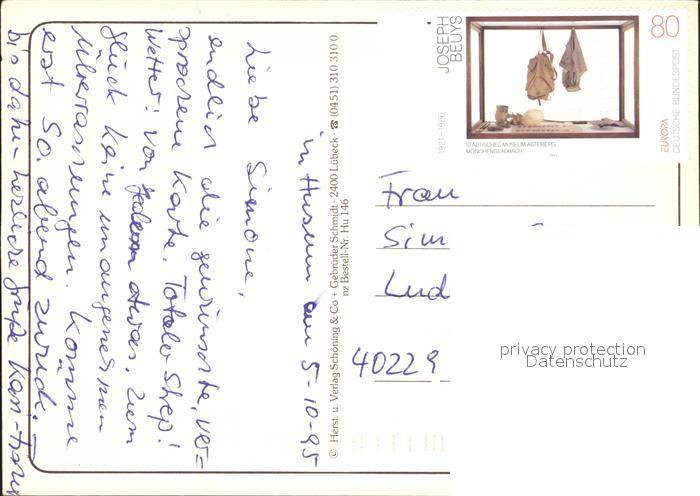 in Husum am 5-10-95
Liebe Simone,
endlich die gewünschte, ver=
sprochene Karte. Totalo Strep!
Wetter: Von jedem etwas. Zum
Glück keine unangenehmen
Überraschungen. Komme
erst So. abend zurück. –
Bis dahin herzliche Grüße
© Herst. u. Verlag Schöning & Co + Gebrüder Schmidt · 2400 Lübeck · ☎ (0451) 310 310 0
nz Bestell-Nr. Hu 146
JOSEPH
BEUYS
1921–1986
80
STÄDTISCHES MUSEUM ABTEIBERG
MÖNCHENGLADBACH
EUROPA
DEUTSCHE BUNDESPOST
Frau
Sim
Lud
40229
privacy protection
Datenschutz